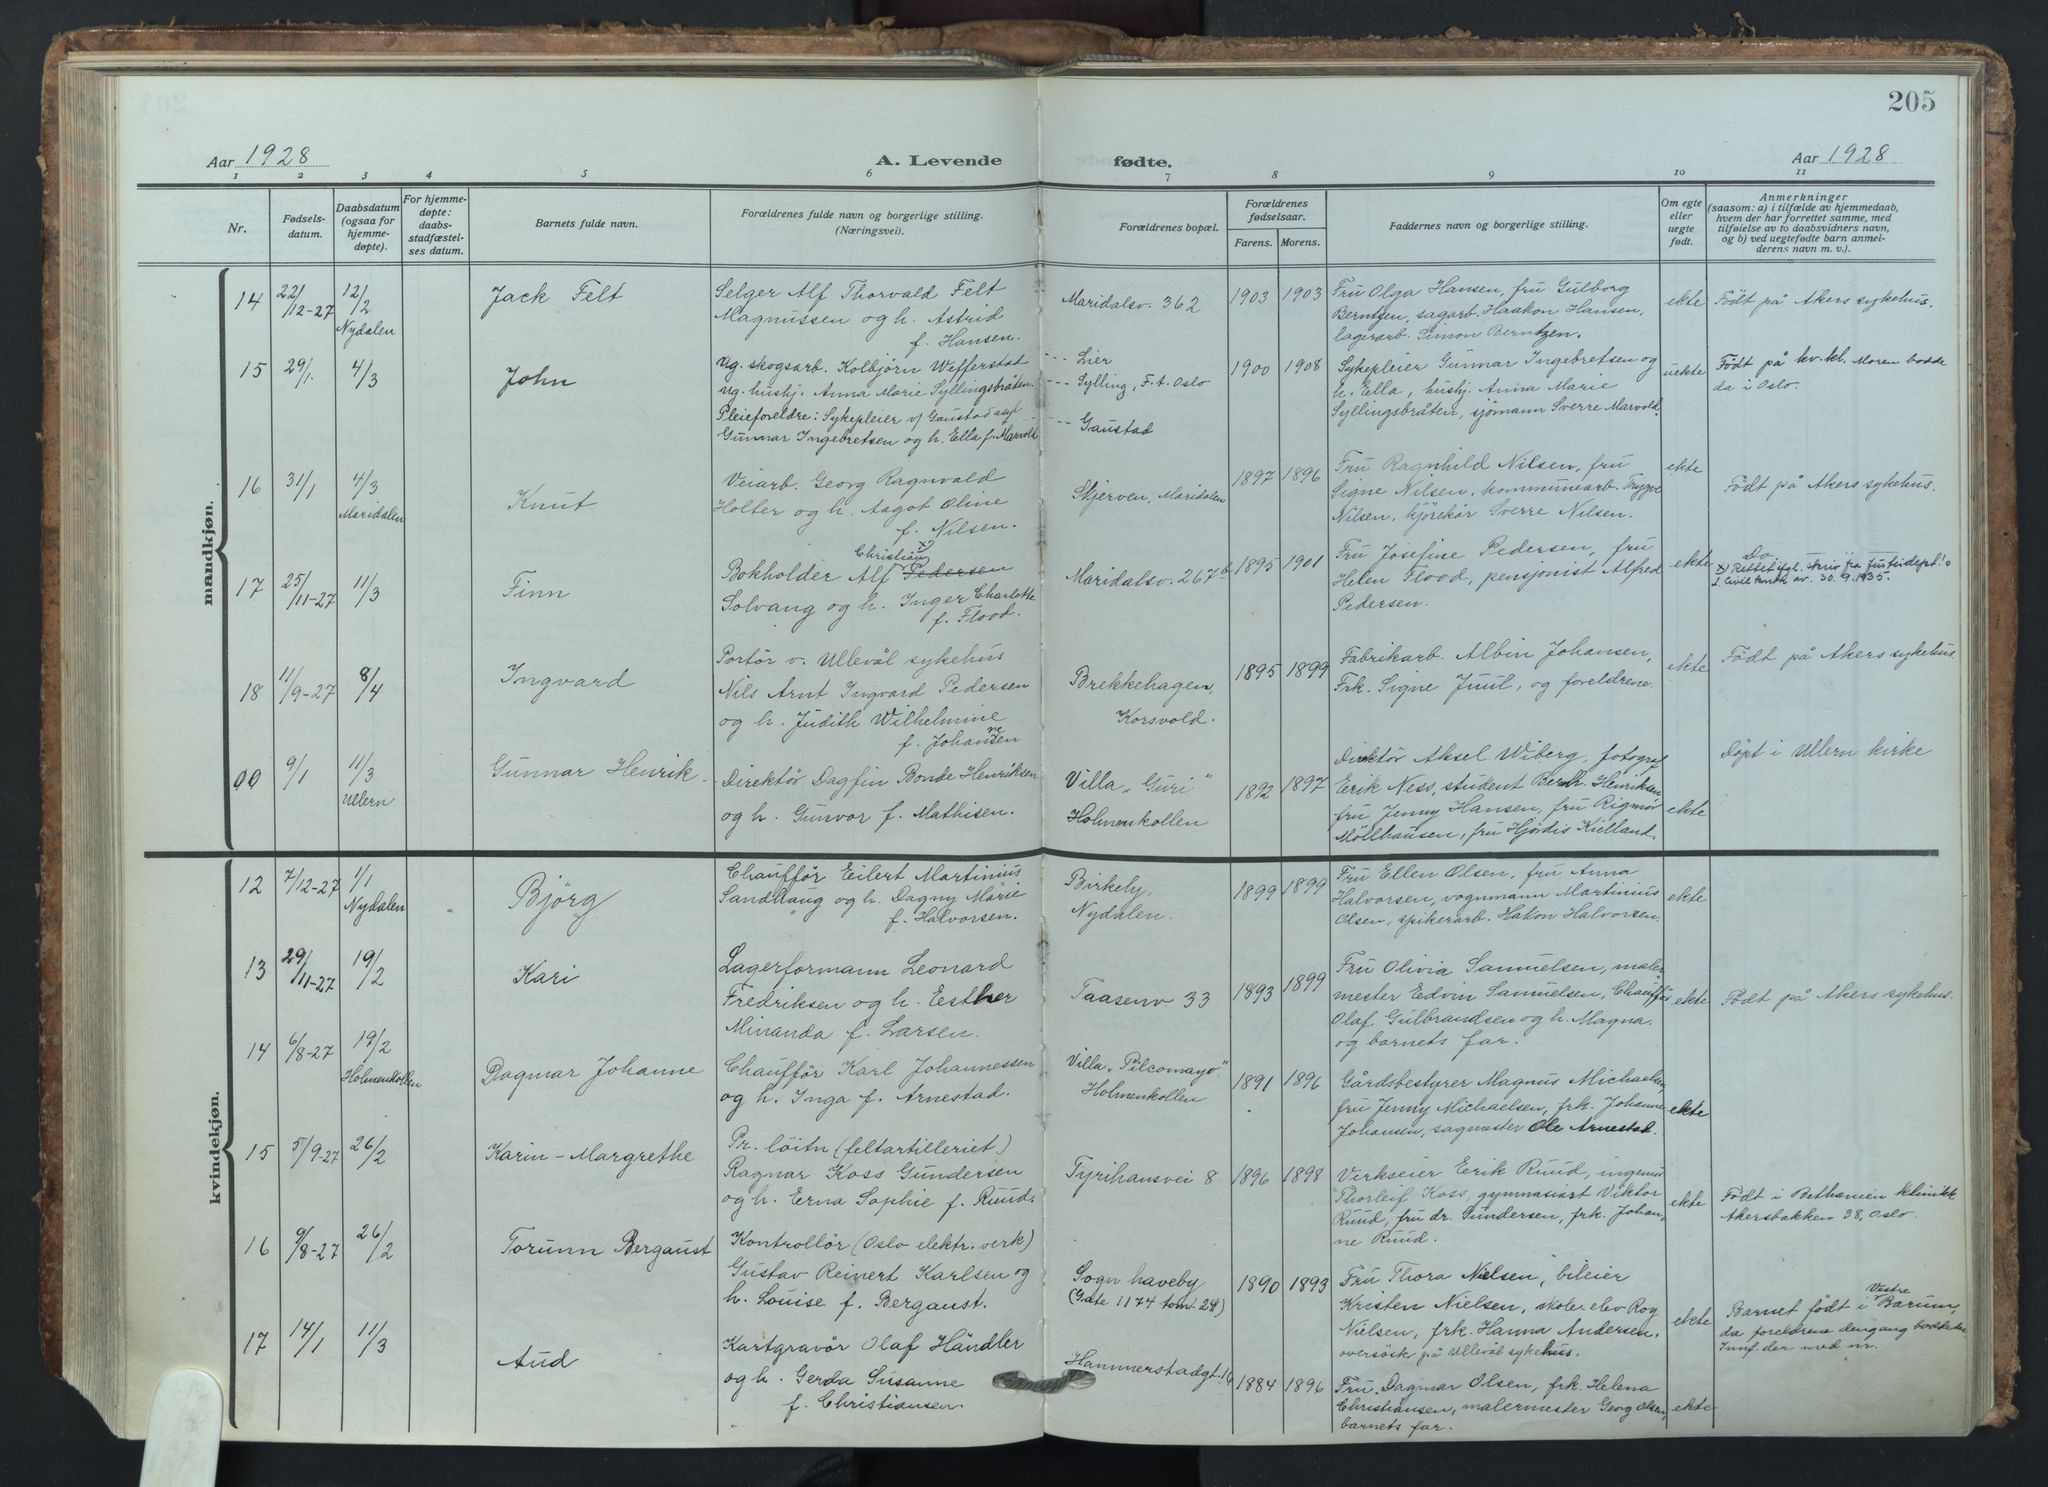 205
Aar 1928
A. Levende fødte.
Aar 1928
1 2 3 4 5 6 7 8 9 10 11
Nr.
Fødsels-
datum.
Daabsdatum
(ogsaa for
hjemme-
døpte).
For hjemme-
døpte:
daabs-
stadfæstel-
ses datum.
Barnets fulde navn.
Forældrenes fulde navn og borgerlige stilling.
(Næringsvei).
Forældrenes bopæl.
Forældrenes
fødselsaar.
Farens. Morens.
Faddernes navn og borgerlige stilling.
Om egte
eller
uegte
født.
Anmerkninger
(saasom: a) i tilfælde av hjemmedaab,
hvem der har forrettet samme, med
tilføielse av to daabsvidners navn,
og b) ved uegtefødte barn anmel-
derens navn m. v.).
mandkjøn.
14
22/12-27
12/2
Nydalen
Jack Felt
Selger Alf Thorvald Felt
Magnussen og h. Astrid
f. Hansen.
Maridalsv. 362
1903 1903
Fru Olga Hansen, fru Gulborg
Berntzen, sagarb. Haakon Hansen,
lagerarb. Simon Berntzen.
ekte
Födt på Akers sykehus.
15
29/1.
4/3
John
Ug. skogsarb. Kolbjörn Wefferstad
ug. hushj. Anna Marie Syllingsbråten.
Pleieforeldre: Sykepleier v/ Gaustad asyl
Gunnar Ingebretsen og h. Ella f. Marvold
--- Lier
--- Sylling, F.t. Oslo
--- Gaustad
1900 1908
Sykepleier Gunnar Ingebretsen og
h. Ella, hushj. Anna Marie
Syllingsbråten, sjömann Sverre Marvold.
uekte
Födt på kv.kl. Moren bodde
da i Oslo.
16
31/1
4/3
Maridalen
Knut
Veiarb. Georg Ragnvald
Holter og h. Aagot Oline
f. Nilsen.
Skjerven, Maridalen
1897 1896
Fru Ragnhild Nilsen, fru
Signe Nilsen, kommunearb. Trygve
Nilsen, kjörekar Sverre Nilsen.
ekte
Födt på Akers sykehus.
17
25/11-27
11/3
Finn
Christian x)
Bokholder Alf Pedersen
Solvang og h. Inger Charlotte
f. Flood.
Maridalsv. 267b
1895 1901
Fru Josefine Pedersen, fru
Helen Flood, pensjonist Alfred
Pedersen.
ekte
Do.
x) Rettet ifgl. skriv fra Justisdept.s
1. Civilkontor av. 30.9.1935.
18
11/9-27
8/4
Ingvard
Portör v. Ullevål sykehus
Nils Arnt Ingvard Pedersen
og h. Judith Wilhelmine
f. Johansen
Brekkehagen,
Korsvold.
1895 1899
Fabrikarb. Albin Johansen,
Frk. Signe Juul, og foreldrene.
ekte
Födt på Akers sykehus
00
9/1
11/3
Ullern
Gunnar Henrik
Direktör Dagfin Bonde Henriksen
og h. Gunvor f. Mathisen.
Villa "Guri"
Holmenkollen
1892 1897
Direktör Aksel Wiberg, fotograf
Erik Ness, student Bernh. Henriksen
fru Jenny Hansen, fru Rigmor
Möllhausen, fru Hjördis Kielland.
ekte
Döpt i Ullern kirke
kvindekjøn.
12
7/12-27
1/1
Nydalen
Björg
Chaufför Eilert Martinius
Sandhaug og h. Dagny Marie
f. Halvorsen.
Birkely,
Nydalen.
1899 1899
Fru Ellen Olsen, fru Anna
Halvorsen, vognmann Martinius
Olsen, spikerarb. Hakon Halvorsen.
ekte
13
29/11-27
19/2
Kari
Lagerformann Leonard
Fredriksen og h. Esther
Miranda f. Larsen.
Taasenv 33
1893 1899
Fru Olivia Samuelsen, maler
mester Edvin Samuelsen, Chaufför
Olaf Gulbrandsen og h. Magna.
og barnets far.
ekte
Födt på Akers sykehus.
14
6/8-27
19/2
Holmenkollen
Dagmar Johanne
Chaufför Karl Johannessen
og h. Inga f. Arnestad.
Villa "Pilcomayo"
Holmenkollen
1891 1896
Gårdsbestyrer Magnus Michaelsen,
fru Jenny Michaelsen, frk. Johanne
Johansen, sagmester Ole Arnestad.
ekte
15
5/9-27
26/2
Karin-Margrethe
Pr. löitn (feltartilleriet)
Ragnar Koss Gundersen
og h. Erna Sophie f. Ruud.
Tyrihansvei 8
1896 1898
Verkseier Erik Ruud, ingeniör
Thorleif Koss, gymnasiast Viktor
Ruud, fru dr. Gundersen, frk. Johan-
ne Ruud.
ekte
Födt i Bethanien klinikk
Akersbakken 38, Oslo.
16
9/8-27
26/2
Torunn Bergaust
Kontrollör (Oslo elektr. verk)
Gustav Reinert Karlsen og
h. Louise f. Bergaust.
Sogn haveby
(Gate 1174 tomt 24)
1890 1893
Fru Thora Nielsen, bileier
Kristen Nielsen, skole-elev Roy
Nielsen, frk. Hanna Andersen,
oversösk på Ullevål sykehus.
ekte
Barnet födt i Vestre Bærum,
da foreldrene dengang bodde der
Innf. der med nr.
17
14/1
11/3
Aud
Kartgravör Olaf Händler
og h. Gerda Susanne
f. Christiansen.
Hammerstadgt. 16
1884 1896
Fru Dagmar Olsen, frk. Helena
Christiansen, malermester Georg Olsen,
barnets far.
ekte